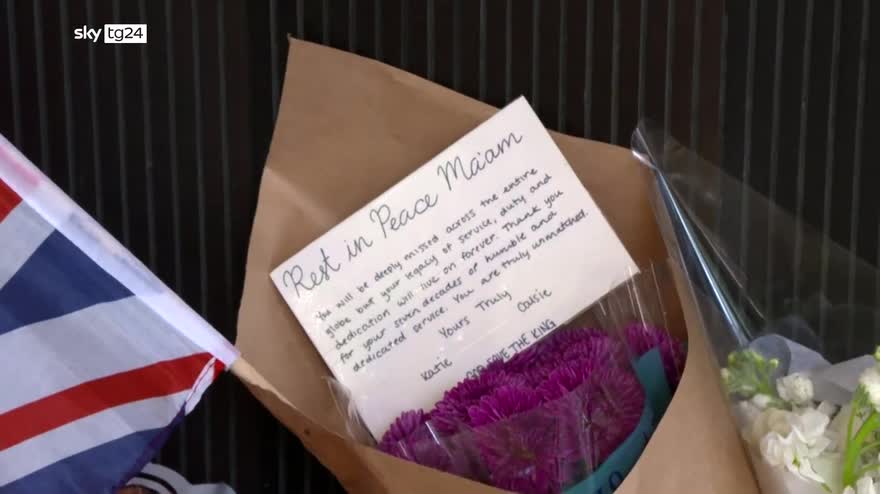 sky tg24
Rest in Peace Ma'am
You will be deeply missed across the entire
globe but your legacy of service, duty and
dedication will live on forever. Thank you
for your seven decades of humble and
dedicated service. You are truly unmatched.
Yours Truly
Katie Calsie
GOD SAVE THE KING